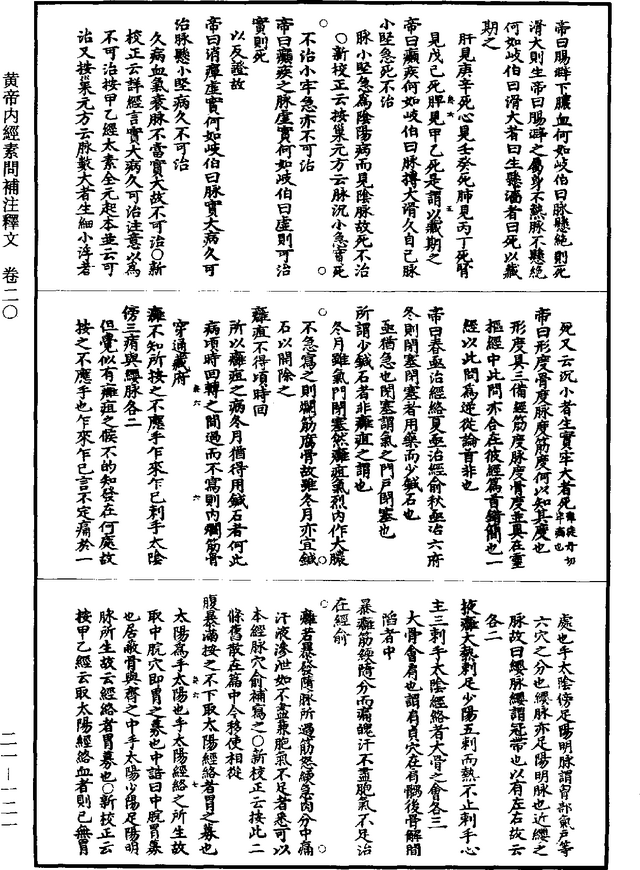 黃帝內經素問補注釋文　卷二〇
二一—一二一
帝曰腸澼下膿血何如岐伯曰脉懸絕則死
滑大則生帝曰腸澼之屬身不熱脉不懸絕
何如岐伯曰滑大者曰生懸濇者曰死以藏
期之
肝見庚辛死心見壬癸死肺見丙丁死腎
見戊己死脾見甲乙死是謂以藏期之
帝曰癲疾何如岐伯曰脉搏大滑久自已脉
小堅急死不治
脉小堅急爲陰陽病而見陰脉故死不治
○新校正云按巢元方云脉沉小急實死
不治小牢急亦不可治
帝曰癲疾之脉虛實何如岐伯曰虛則可治
實則死
以反證故
帝曰消癉虛實何如岐伯曰脉實大病久可
治脉懸小堅病久不可治
久病血氣衰脉不當實大故不可治○新
校正云詳經言實大病久可治注意以爲
不可治按甲乙經太素全元起本並云可
治又按巢元方云脉數大者生細小浮者
死又云沉小者生實牢大者死
帝曰形度骨度脉度筋度何以知其度也
形度具三備經筋度脉度骨度並具在靈
樞經中此問亦合在彼經篇首錯簡也一
經以此問爲逆從論首非也
帝曰春亟治經絡夏亟治經俞秋亟治六府
冬則閉塞閉塞者用藥而少鍼石也
亟猶急也閉塞謂氣之門戶閉塞也
所謂少鍼石者非癰疽之謂也
冬月雖氣門閉塞然癰疽氣烈內作大膿
不急寫之則爛筋腐骨故雖冬月亦宜鍼
石以開除之
癰疽不得頃時回
所以癰疽之病冬月猶得用鍼石者何此
病頃時回轉之間過而不寫則內爛筋骨
穿通藏府
癰不知所按之不應手乍來乍已刺手太陰
傍三痏與纓脉各二
但覺似有癰疽之候不的知發在何處故
按之不應手也乍來乍已言不定痛於一
處也手太陰傍足陽明脉謂胃部氣戶等
六穴之分也纓脉亦足陽明脉也近纓之
脉故曰纓脉纓謂冠帶也以有左右故云
各二
掖癰大熱刺足少陽五刺而熱不止刺手心
主三刺手太陰經絡者大骨之會各三
大骨會肩也謂肩貞穴在肩髃後骨解間
陷者中
暴癰筋緛隨分而痛魄汗不盡胞氣不足治
在經俞
癰若暴發隨脉所過筋怨緛急肉分中痛
汗液滲泄如不盡兼胞氣不足者悉可以
本經脉穴俞補寫之○新校正云按此二
條舊散在篇中今移使相從
腹暴滿按之不下取太陽經絡者胃之募也
太陽爲手太陽也手太陽經絡之所生故
取中脘穴即胃之募也中誥曰中脘胃募
也居蔽骨與齊之中手太陽少陽足陽明
脉所生故云經絡者胃募也○新校正云
按甲乙經云取太陽經絡血者則已無胃